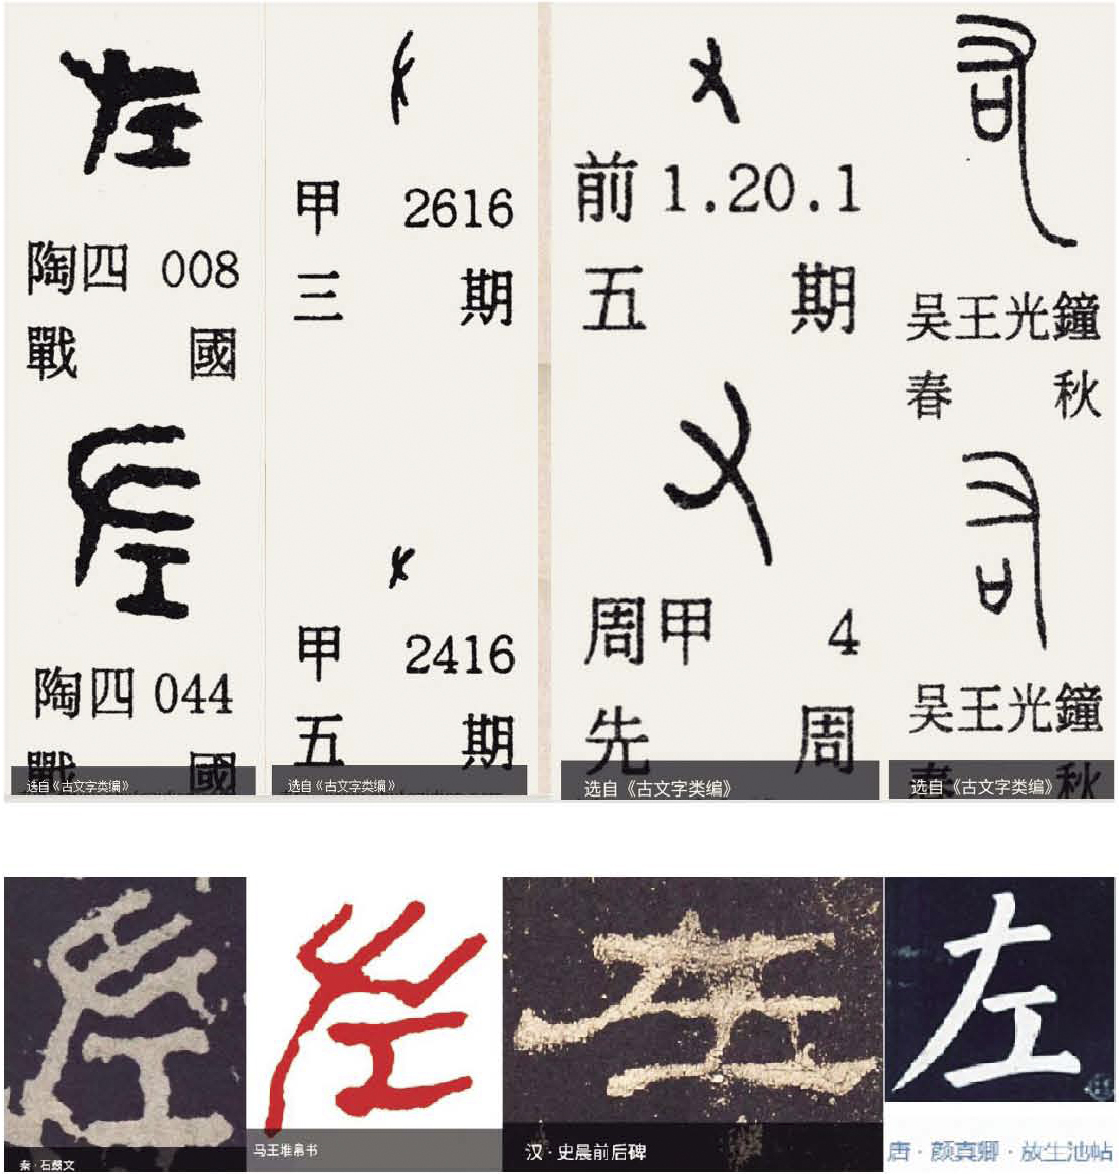 左
陶四 008
戰 國
左
陶四 044
戰 國
选自《古文字类编》
甲 2616
三 期
甲 2416
五 期
选自《古文字类编》
前 1.20.1
五 期
周甲 4
先 周
选自《古文字类编》
吴王光鐘
春 秋
吴王光鐘
春 秋
选自《古文字类编》
左
秦·石鼓文
左
马王堆帛书
左
汉·史晨前后碑
左
唐·颜真卿·放生池帖